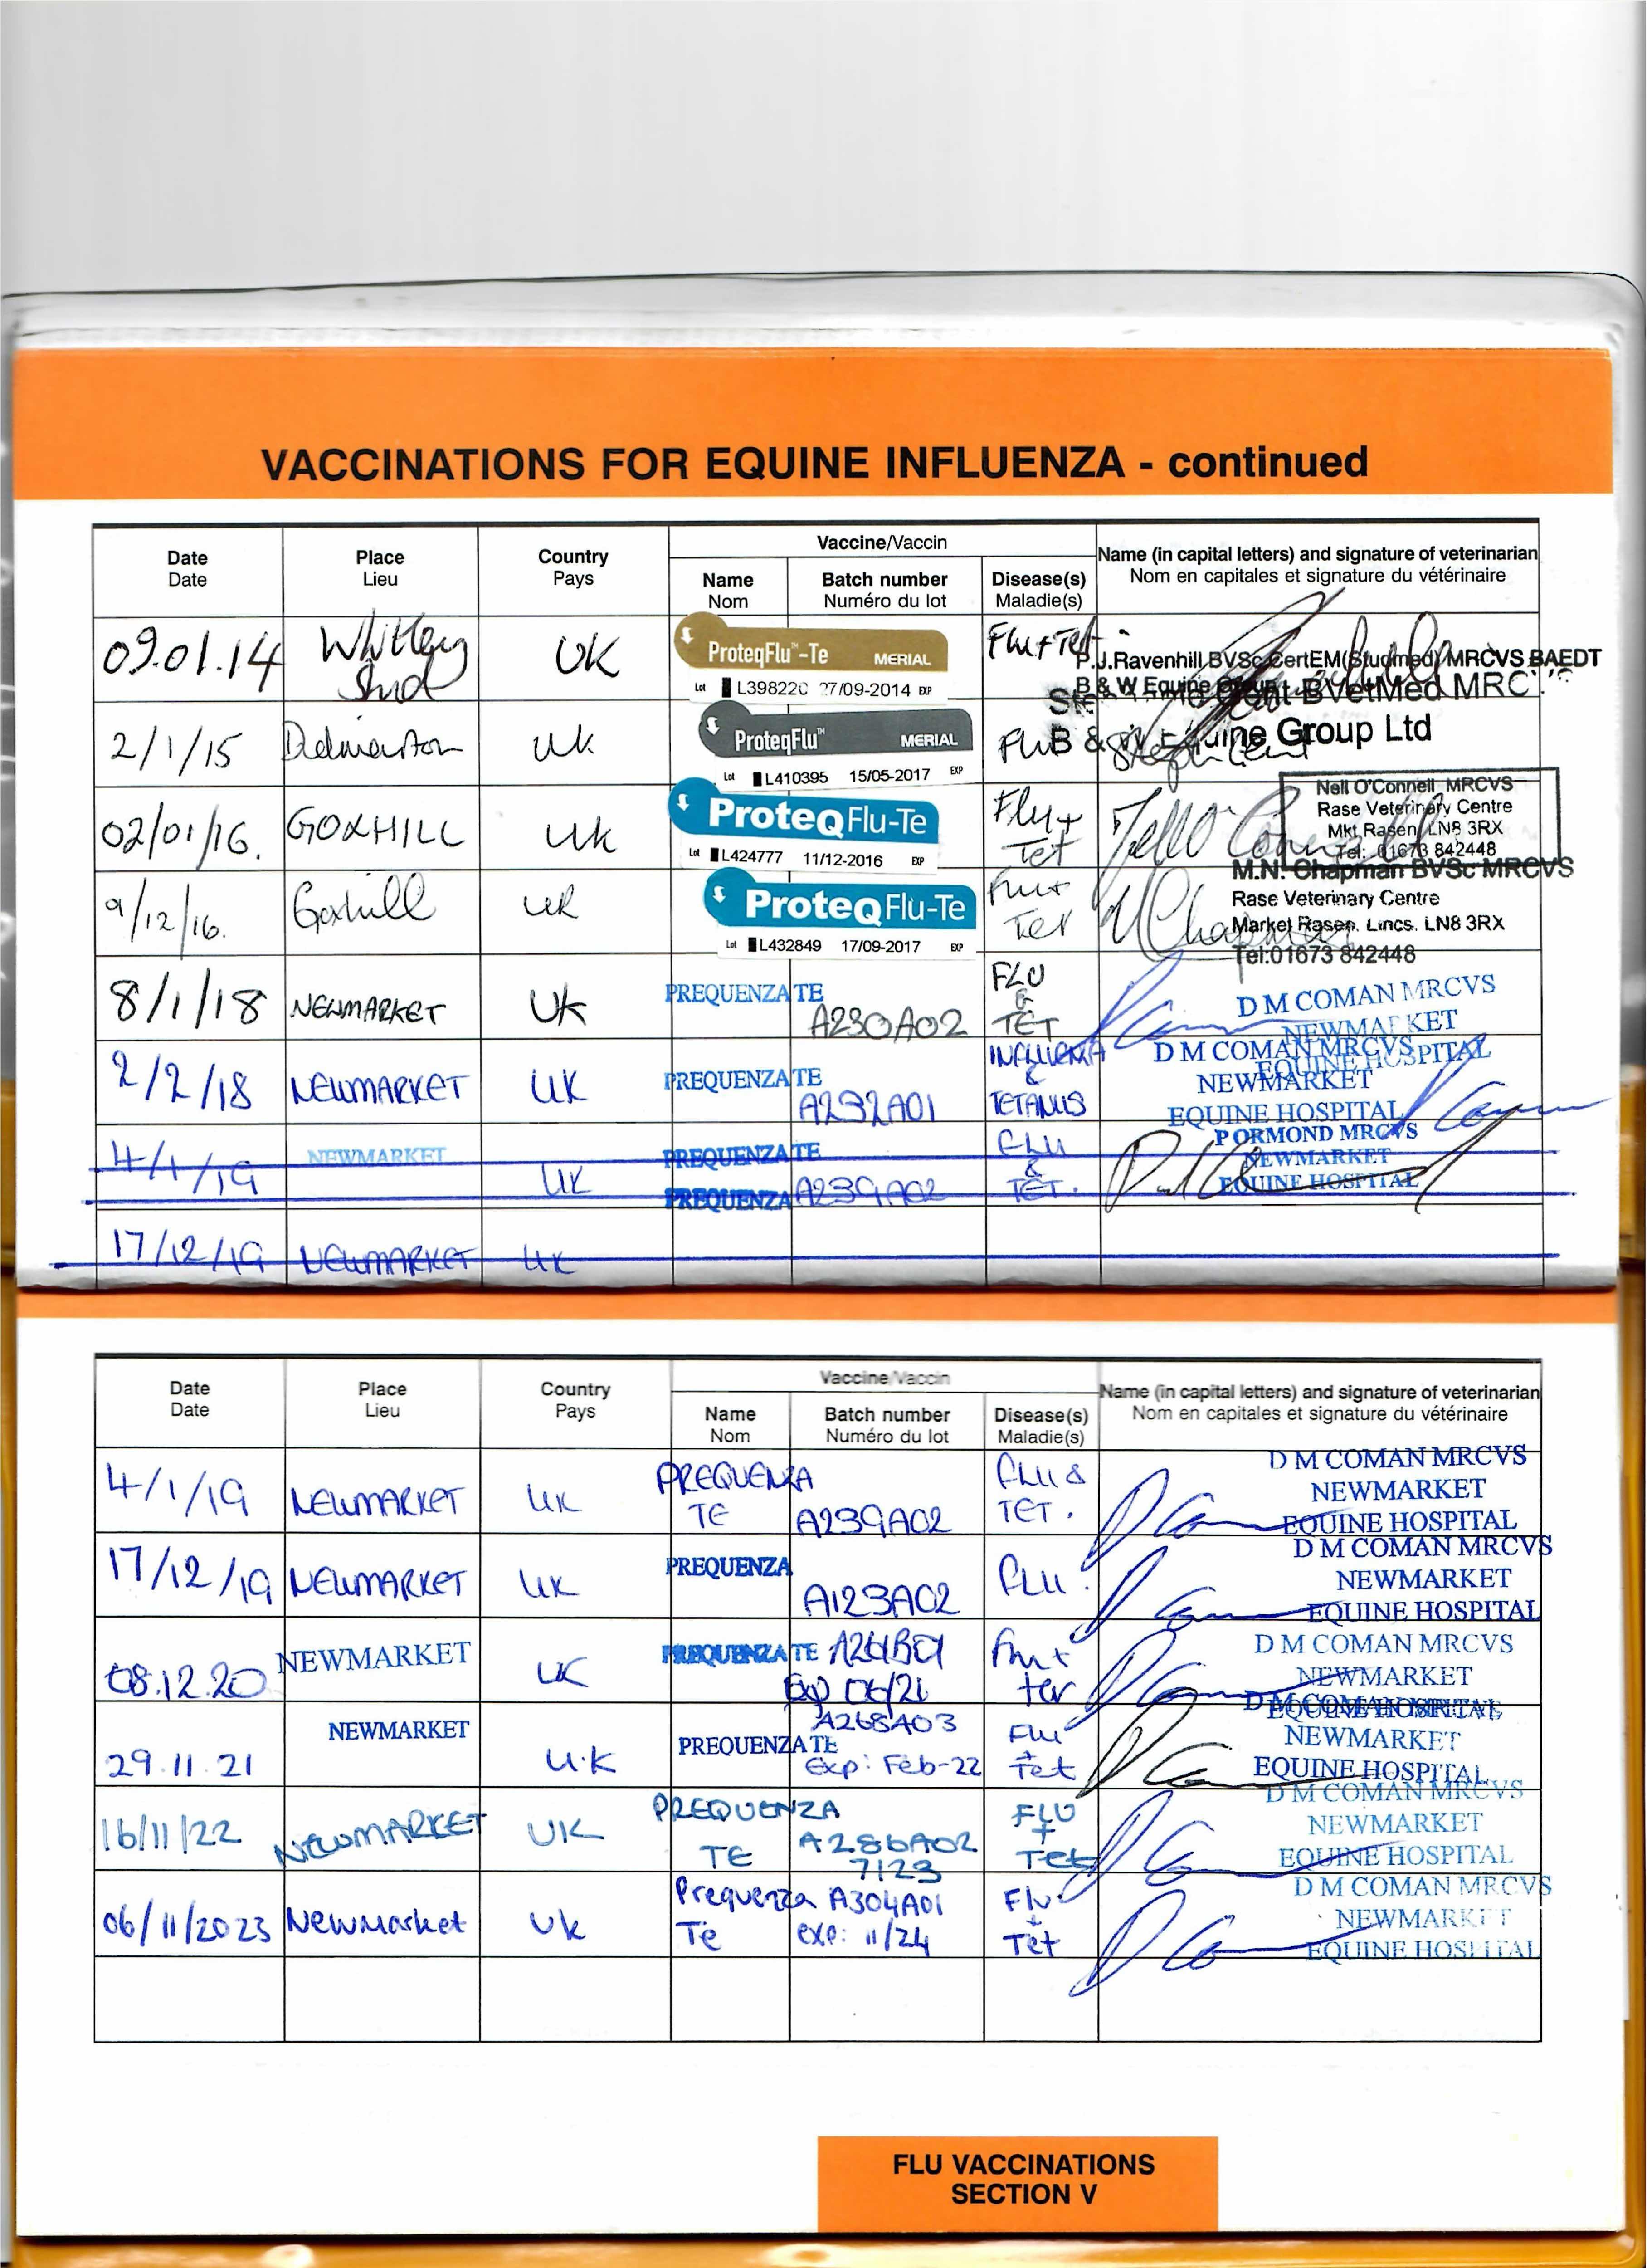 VACCINATIONS FOR EQUINE INFLUENZA - continued
Date Place Country Vaccine/Vaccin Name (in capital letters) and signature of veterinarian
Date Lieu Pays Nom en capitales et signature du vétérinaire
Name Batch number Disease(s)
Nom Numéro du lot Maladie(s)
09.01.14 Whitley Stud UK ProteqFlu™-Te MERIAL Flu + Tet
Lot L398220 27/09/2014 EXP
P.J.Ravenhill BVSc CertEM(Studmed) MRCVS BAEDT
B & W Equine Group
Gent BVetMed MRCVS
2/1/15 UK ProteqFlu™ MERIAL Flu B & W Equine Group Ltd
Lot L410395 15/05/2017 EXP
02/01/16. GOXHILL UK ProteqFlu-Te Flu + Tet
Lot L424777 11/12/2016 EXP
Nell O'Connell MRCVS
Rase Veterinary Centre
Mkt Rasen LN8 3RX
Tel: 01673 842448
9/12/16. Goxhill UK ProteqFlu-Te Flu + Tet
Lot L432849 17/09/2017 EXP
M.N. Chapman BVSc MRCVS
Rase Veterinary Centre
Market Rasen. Lincs. LN8 3RX
Tel:01673 842448
8/1/18 NEWMARKET UK PREQUENZA TE A230A02 FLU & TET
D M COMAN MRCVS
NEWMARKET
EQUINE HOSPITAL
2/2/18 NEWMARKET UK PREQUENZA TE A232A01 INFLUENZA & TETANUS
D M COMAN MRCVS
NEWMARKET
EQUINE HOSPITAL
4/1/19 NEWMARKET UK PREQUENZA TE A239A02 FLU & TET.
P ORMOND MRCVS
NEWMARKET
EQUINE HOSPITAL
PREQUENZA
17/12/19 NEWMARKET UK
Date Place Country Vaccine/Vaccin Name (in capital letters) and signature of veterinarian
Date Lieu Pays Nom en capitales et signature du vétérinaire
Name Batch number Disease(s)
Nom Numéro du lot Maladie(s)
4/1/19 NEWMARKET UK PREQUENZA TE A239A02 FLU & TET.
D M COMAN MRCVS
NEWMARKET
EQUINE HOSPITAL
17/12/19 NEWMARKET UK PREQUENZA A123A02 FLU.
D M COMAN MRCVS
NEWMARKET
EQUINE HOSPITAL
08.12.20 NEWMARKET UK PREQUENZA TE Flu + tet
Exp 06/21
D M COMAN MRCVS
NEWMARKET
EQUINE HOSPITAL
29.11.21 NEWMARKET U.K PREQUENZA TE A268A03 Flu + Tet
Exp: Feb-22
D M COMAN MRCVS
NEWMARKET
EQUINE HOSPITAL
16/11/22 NEWMARKET UK PREQUENZA TE A286A02 FLU + Tet
7123
D M COMAN MRCVS
NEWMARKET
EQUINE HOSPITAL
06/11/2023 Newmarket Uk Prequenza Te A304A01 Flu + Tet
exp: 11/24
D M COMAN MRCVS
NEWMARKET
EQUINE HOSPITAL
FLU VACCINATIONS
SECTION V